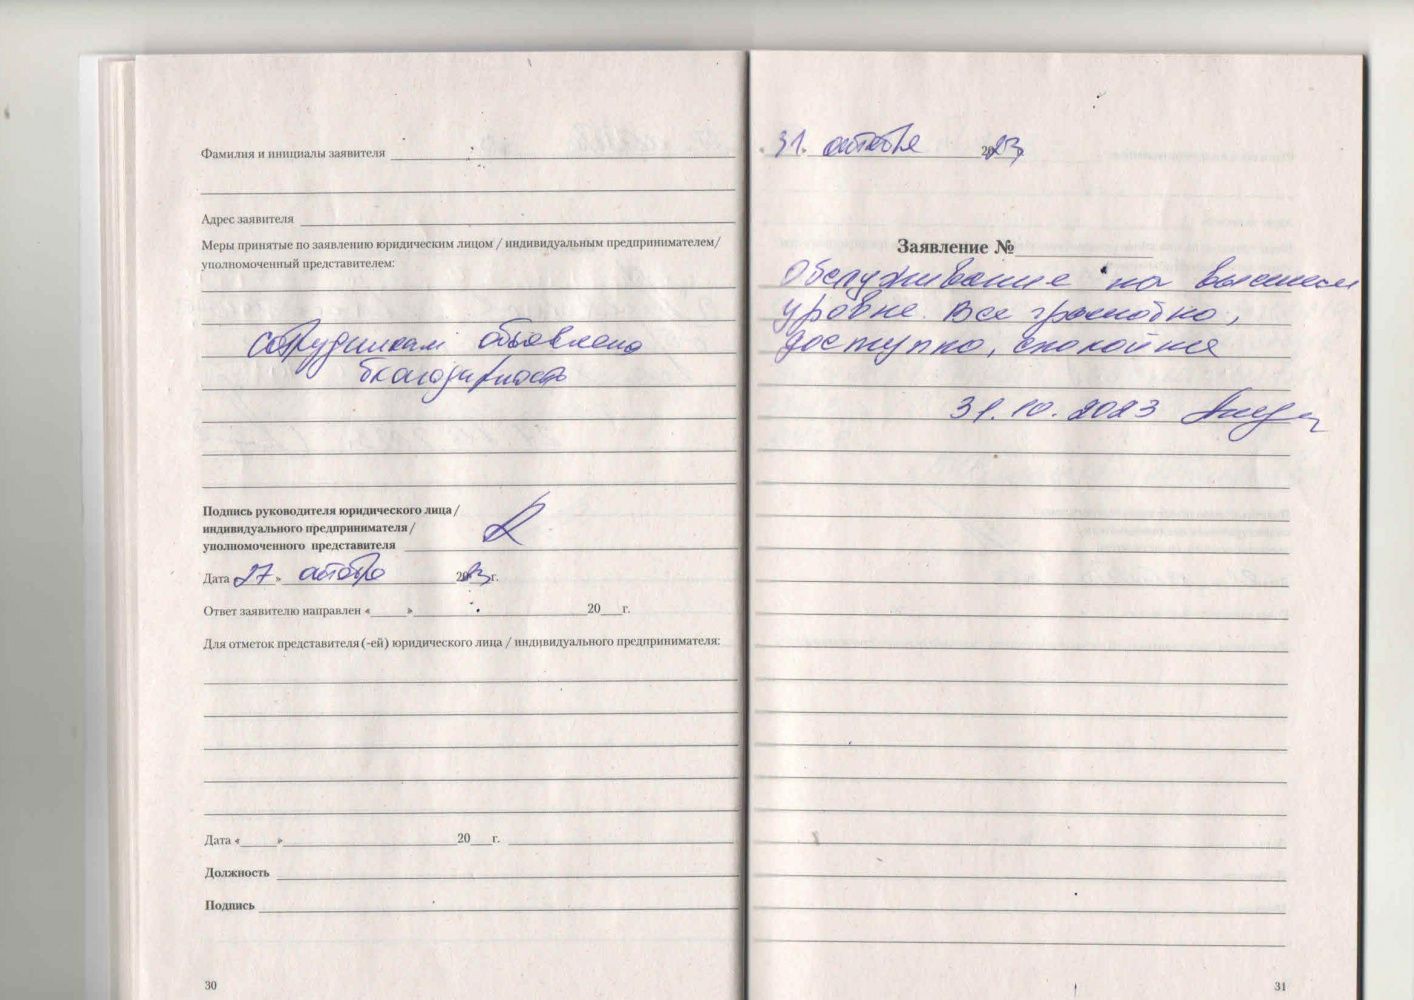 Фамилия и инициалы заявителя
Адрес заявителя
Меры принятые по заявлению юридическим лицом / индивидуальным предпринимателем/
уполномоченный представителем:
сотрудникам объявлена
благодарность
Подпись руководителя юридического лица /
индивидуального предпринимателя /
уполномоченного представителя
Дата «27» октября 2023г.
Ответ заявителю направлен «___»___20___г.
Для отметок представителя (-ей) юридического лица / индивидуального предпринимателя:
Дата «___»___20___г.
Должность
Подпись
30
31. октября 2023
Заявление №
Обслуживание на высшем
уровне. Все грамотно,
доступно, спокойно
31.10.2023
31